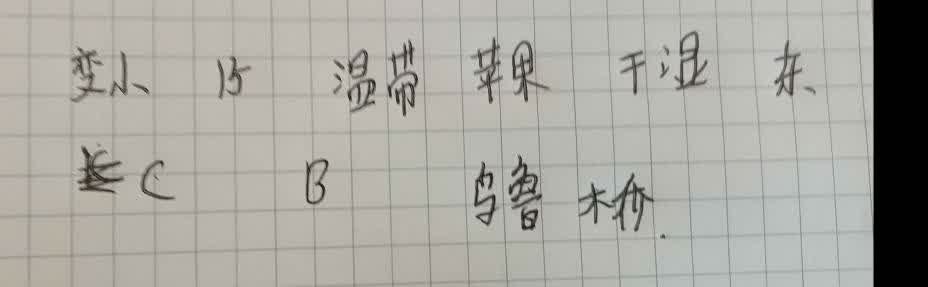 变小 15 温带 苹果 干湿 东
C B 乌鲁木桥.